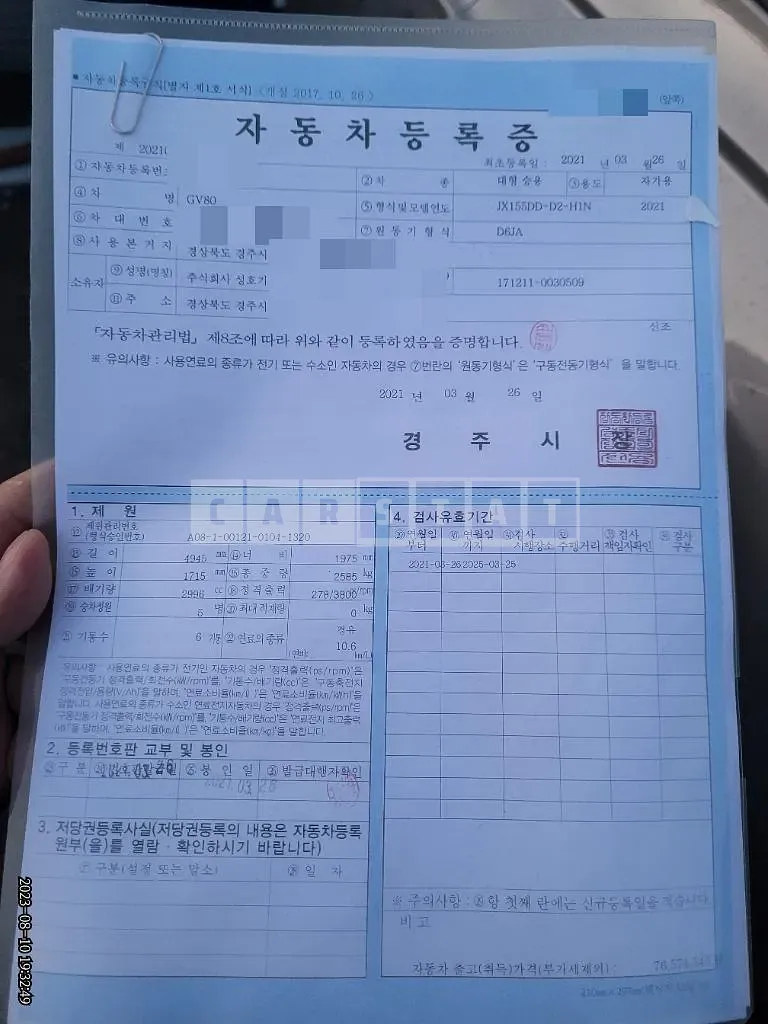 ■ 자동차등록규칙[별지 제1호 서식] <개설 2017. 10. 26>
(앞쪽)
자동차등록증
제 2021
최초등록일 : 2021 년 03 월 26 일
① 자동차등록번호 ② 차 종 대형 승용 ③ 용도 자가용
④ 차 명 GV80 ⑤ 형식 및 모델연도 JX155DD-D2-H1N 2021
⑥ 차 대 번 호 ⑦ 원 동 기 형 식 D6JA
⑧ 사 용 본 거 지 경상북도 경주시
소유자 ⑨ 성명(명칭) 주식회사 성호기 171211-0030509
⑪ 주 소 경상북도 경주시
「자동차관리법」 제8조에 따라 위와 같이 등록하였음을 증명합니다.
신조
※ 유의사항 : 사용연료의 종류가 전기 또는 수소인 자동차의 경우 ⑦번란의 '원동기형식'은 '구동전동기형식' 을 말합니다.
2021 년 03 월 26 일
경 주 시 장
CARSTAT
1. 제 원
제원관리번호
(형식승인번호) A08-1-00121-0104-1320
길 이 4945 mm 너 비 1975 mm
높 이 1715 mm 총 중 량 2585 kg
배기량 2996 cc 정격출력 278/3800 rpm
승차정원 5 명 최대적재량 0 kg
기통수 6 기통 연료의 종류 경유
(연비) 10.6 km/L
유의사항 : 사용연료의 종류가 전기인 자동차의 경우 '정격출력(ps/rpm)'은
'구동전동기 정격출력/회전수(kW/rpm)'를, '기통수/배기량(cc)'은 '구동축전지
정격전압/용량(V/Ah)'을 말하며, '연료소비율(km/ℓ)'은 '연료소비율(km/kWh)'을
말합니다. 사용연료의 종류가 수소인 연료전지자동차의 경우 '정격출력(ps/rpm)'은
'구동전동기 정격출력/회전수(kW/rpm)'를, '기통수/배기량(cc)'은 '연료전지 최고출력
(kW)'을 말하며, '연료소비율(km/ℓ)'은 '연료소비율(km/kg)'을 말합니다.
2. 등록번호판 교부 및 봉인
구 분 번호판 봉 인 일 발급대행자확인
2021. 03 26
3. 저당권등록사실(저당권등록의 내용은 자동차등록
원부(을)를 열람ㆍ확인하시기 바랍니다)
구분(설정 또는 말소) 일 자
4. 검사유효기간
연월일 연월일 검사 검사 검사
부터 까지 시행장소 주행거리 책임자확인 구분
2021-03-26 2025-03-25
※ 주의사항 : 항 첫째 란에는 신규등록일을 적습니다
비 고
자동차 출고(취득)가격(부가세제외) :
2023-08-10 19:32:49